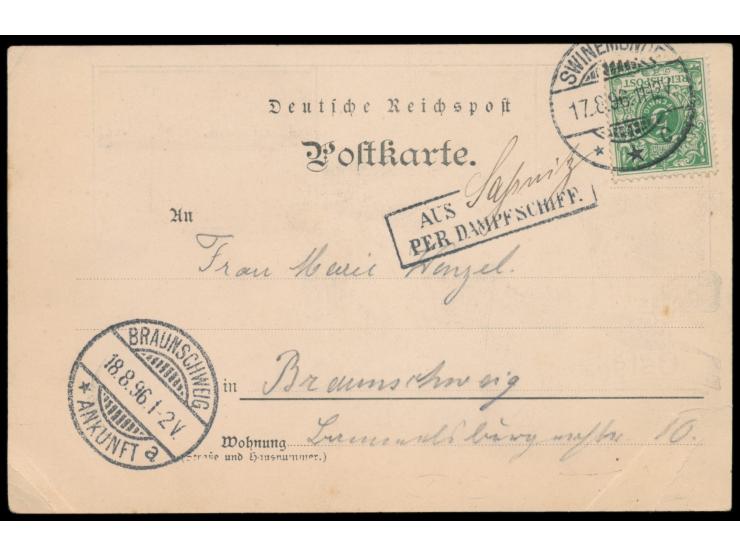 SWINEMÜNDE
17.8.96.
REICHSPOST
Deutsche Reichspost
Postkarte.
AUS Saßnitz
PER DAMPFSCHIFF.
An
Frau Marie Wenzel.
BRAUNSCHWEIG
18.8.96.1-2V.
* ANKUNFT a
in Braunschweig
Wohnung 10.
(Straße und Hausnummer.)